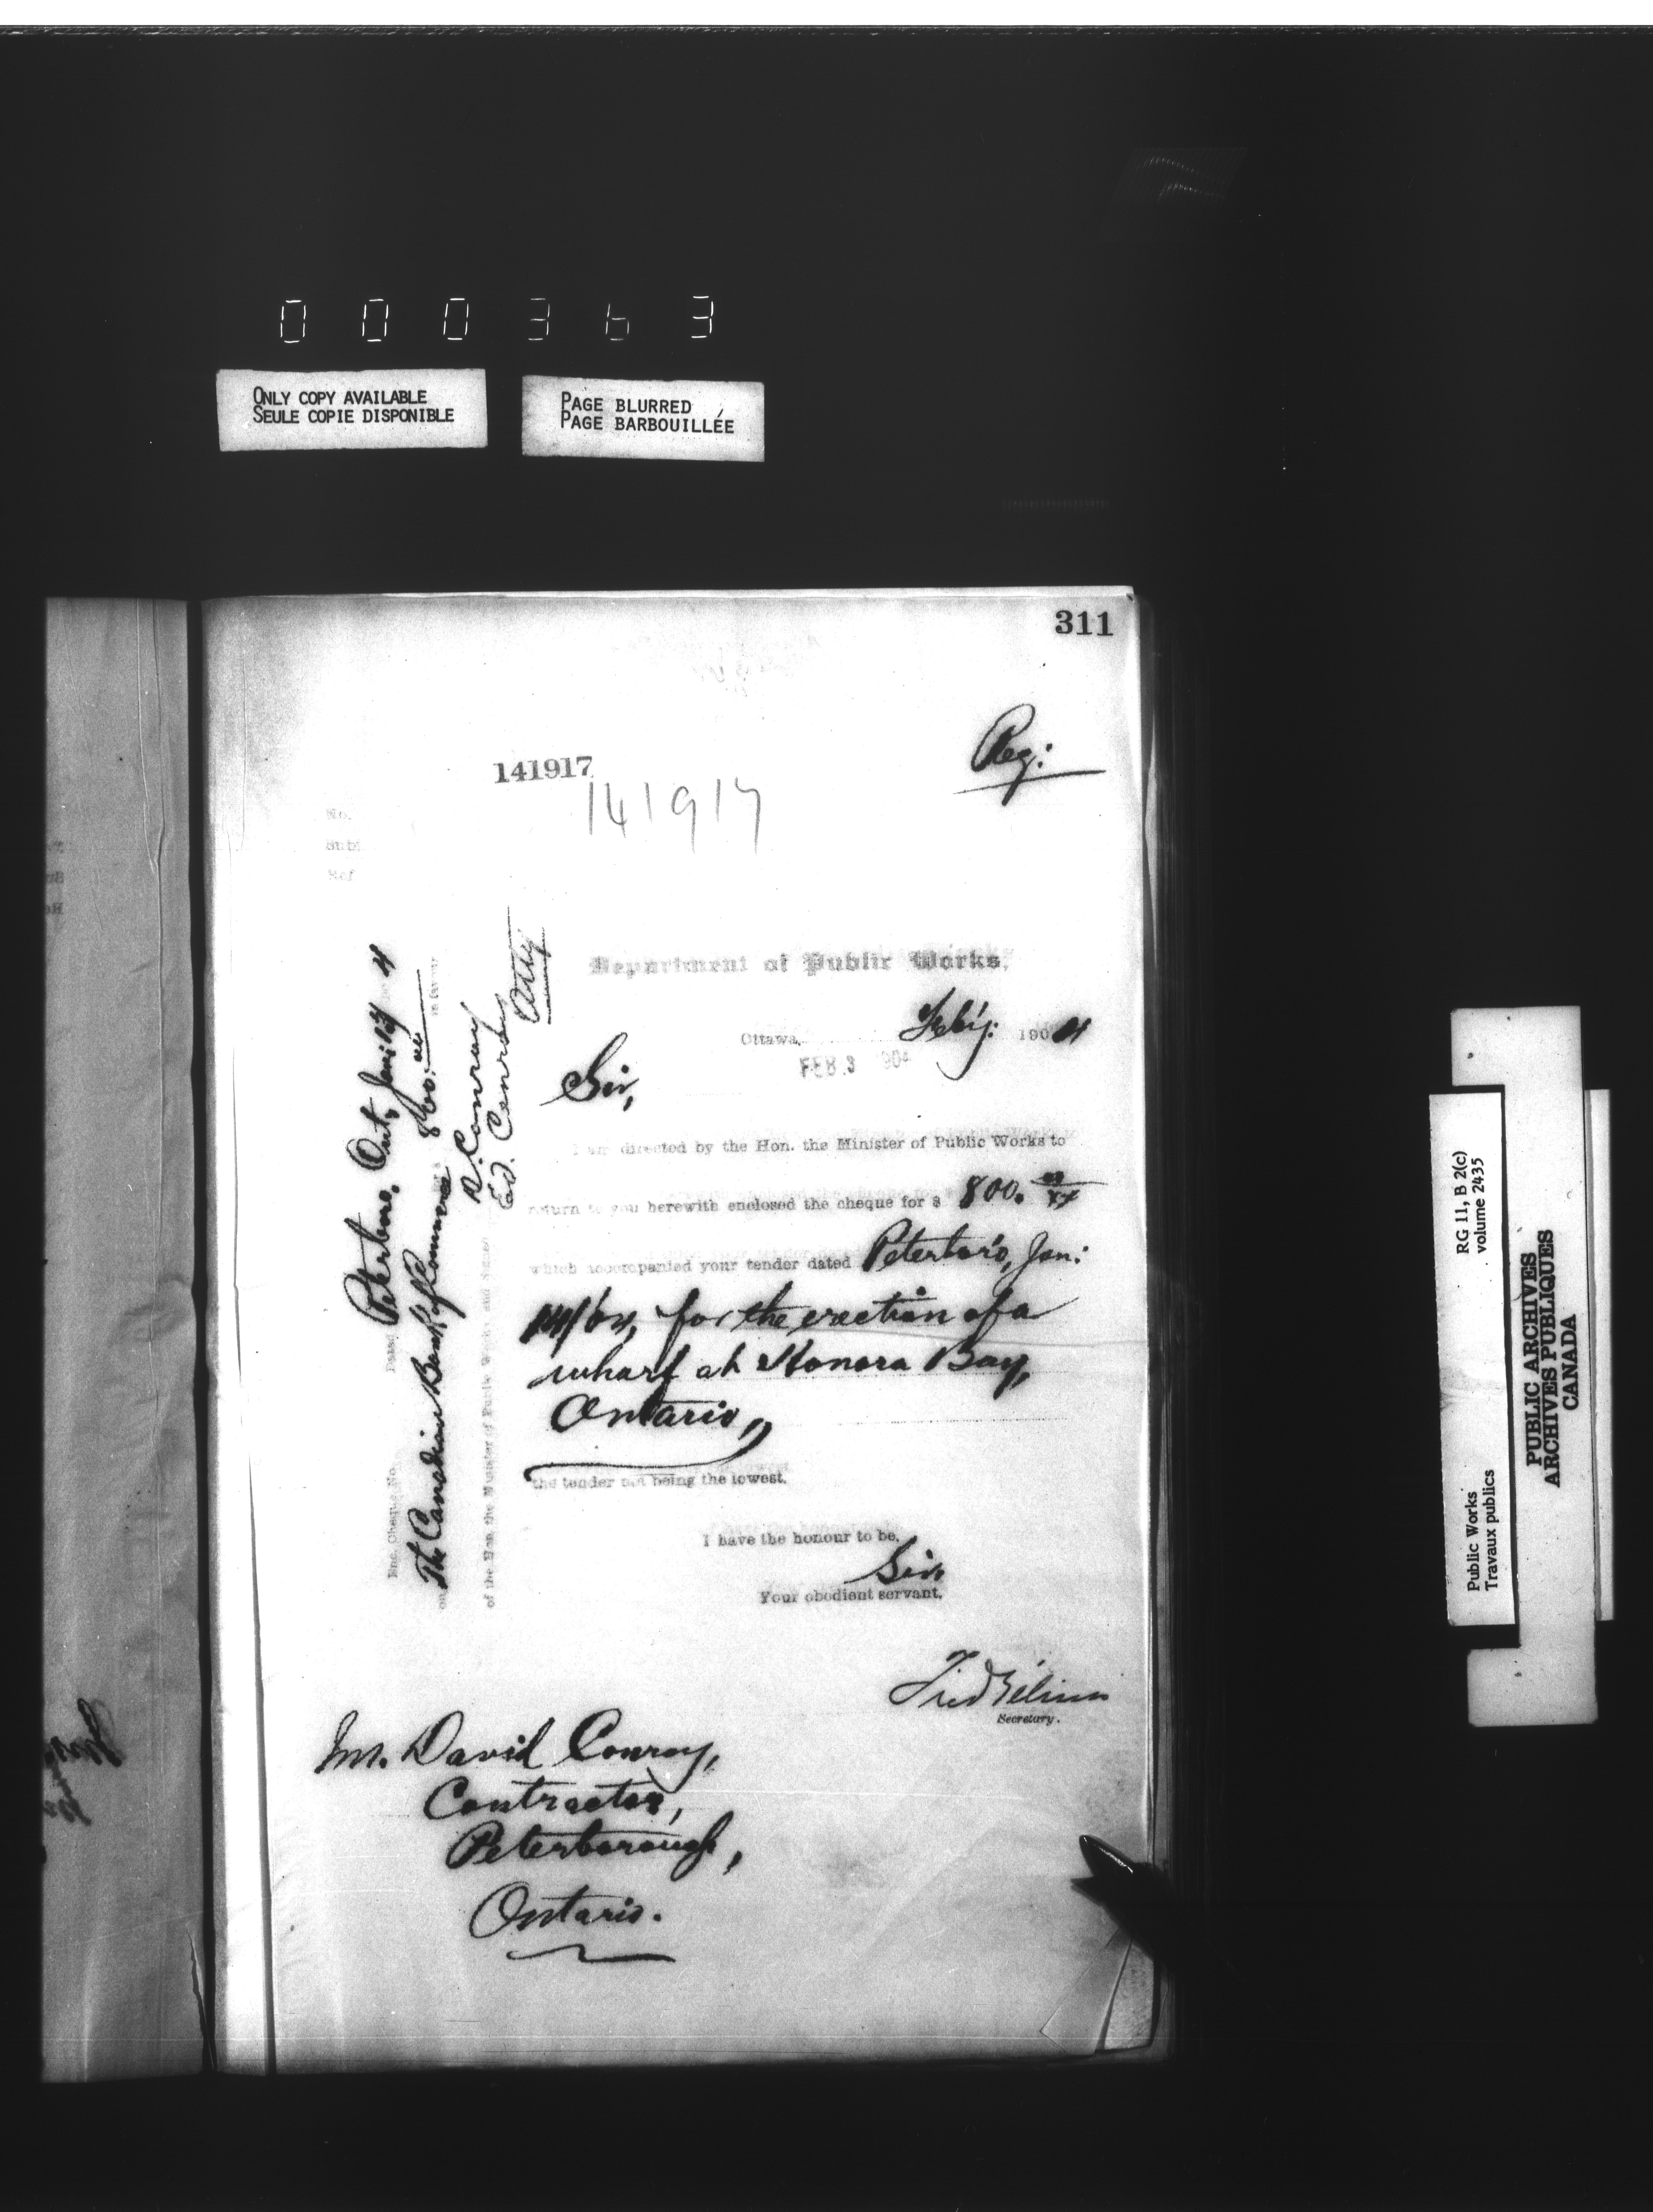 000363
ONLY COPY AVAILABLE
SEULE COPIE DISPONIBLE
PAGE BLURRED
PAGE BARBOUILLÉE
311
Reg:
141917
141917
No.
Subj
Ref
Department of Public Works,
Ottawa, Feb'y: 1904
FEB 3 904
Sir,
I am directed by the Hon. the Minister of Public Works to
return to you herewith enclosed the cheque for $ 800. 00/xx
which accompanied your tender dated Peterboro, Jan:
14/04, for the erection of a
wharf at Honora Bay,
Ontario,
the tender not being the lowest.
I have the honour to be,
Sir,
Your obedient servant,
Secretary.
Mr. David Conroy,
Contractor,
Peterborough,
Ontario.
Enc. Cheque No. Dated Peterboro, Ont, Jan: 4
on The Canadian Bank of Commerce 800.
of the Hon. the Minister of Public Works and signed D. Conroy
Ed. Conroy
Atty
Public Works
Travaux publics
RG 11, B 2(c)
volume 2435
PUBLIC ARCHIVES
ARCHIVES PUBLIQUES
CANADA